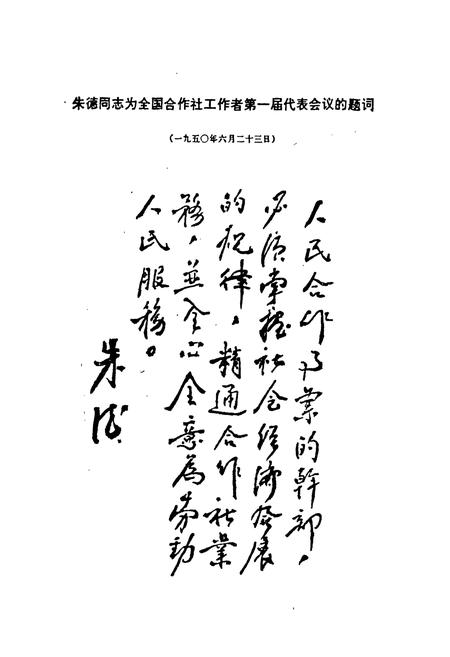 朱德同志为全国合作社工作者第一届代表会议的题词
(一九五〇年六月二十三日)
人民合作事業的幹部，
必須掌握社会經濟發展
的規律，精通合作社業
務，並全心全意為劳動
人民服務。
朱德